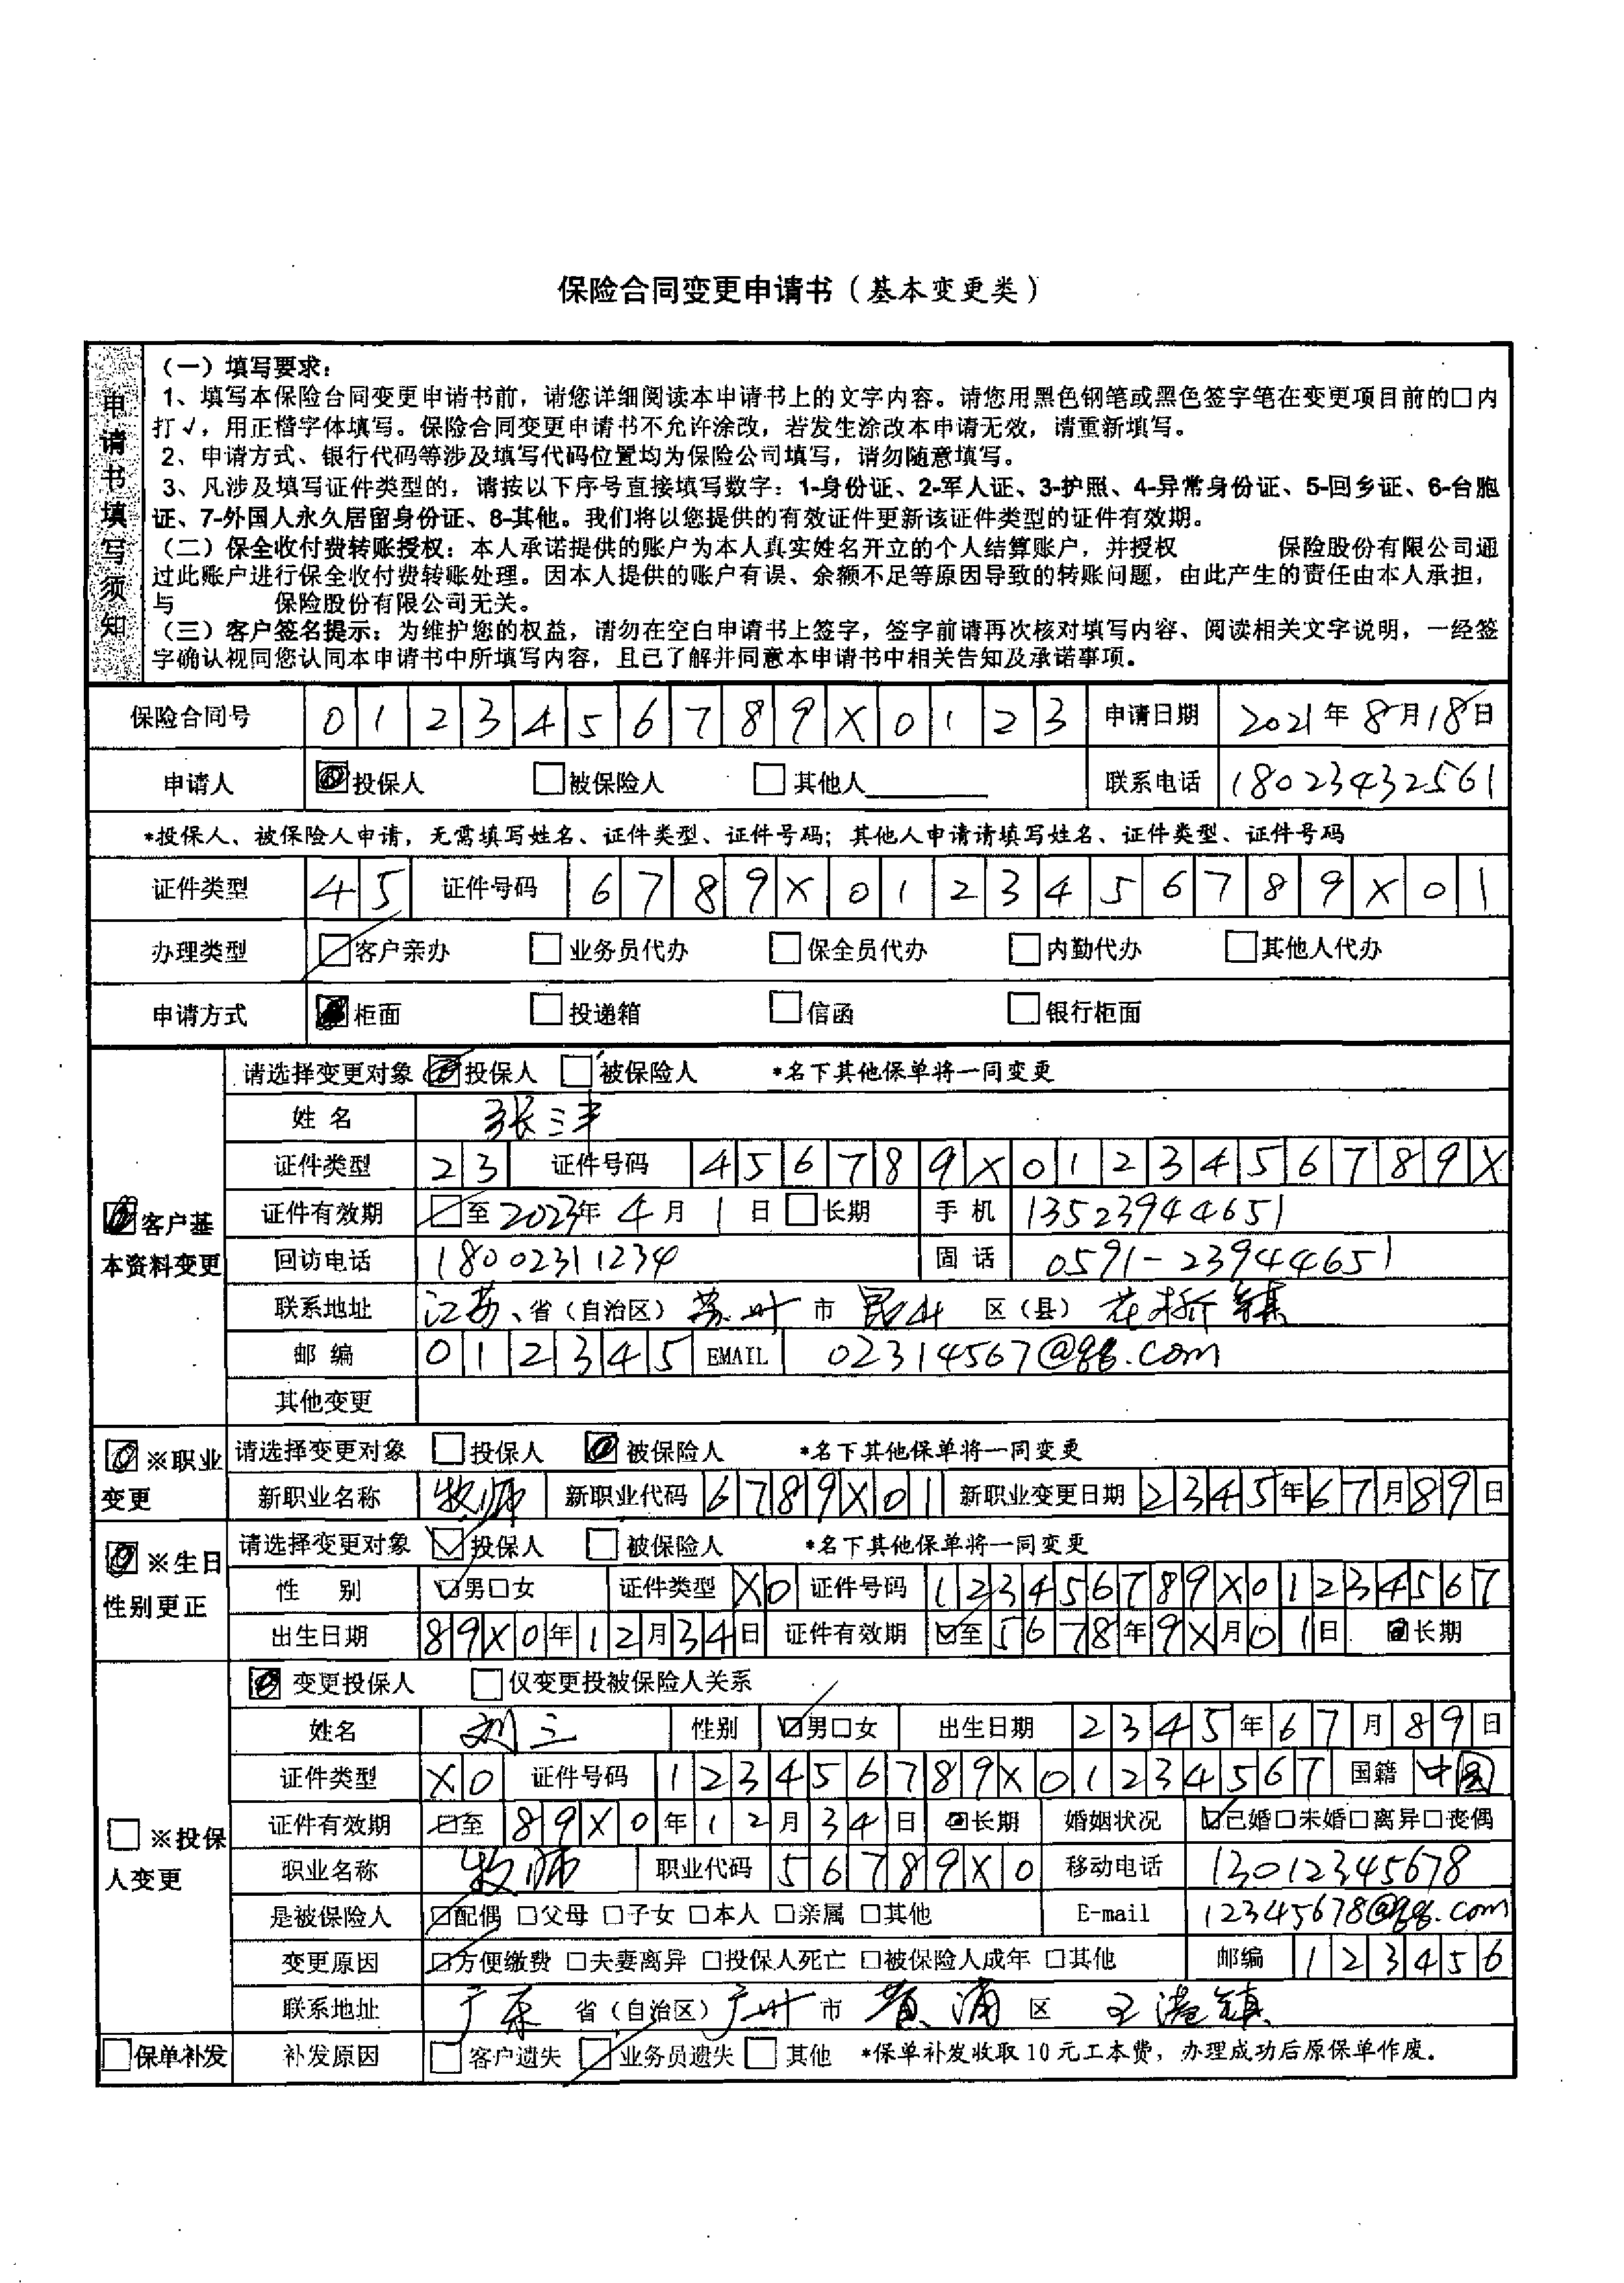 保险合同变更申请书（基本变更类）
申请书填写须知
（一）填写要求：
1、填写本保险合同变更申请书前，请您详细阅读本申请书上的文字内容。请您用黑色钢笔或黑色签字笔在变更项目前的□内
打√，用正楷字体填写。保险合同变更申请书不允许涂改，若发生涂改本申请无效，请重新填写。
2、申请方式、银行代码等涉及填写代码位置均为保险公司填写，请勿随意填写。
3、凡涉及填写证件类型的，请按以下序号直接填写数字：1-身份证、2-军人证、3-护照、4-异常身份证、5-回乡证、6-台胞
证、7-外国人永久居留身份证、8-其他。我们将以您提供的有效证件更新该证件类型的证件有效期。
（二）保全收付费转账授权：本人承诺提供的账户为本人真实姓名开立的个人结算账户，并授权 保险股份有限公司通
过此账户进行保全收付费转账处理。因本人提供的账户有误、余额不足等原因导致的转账问题，由此产生的责任由本人承担，
与 保险股份有限公司无关。
（三）客户签名提示：为维护您的权益，请勿在空白申请书上签字，签字前请再次核对填写内容、阅读相关文字说明，一经签
字确认视同您认同本申请书中所填写内容，且已了解并同意本申请书中相关告知及承诺事项。
保险合同号 0123456789X0123 申请日期 2021年8月18日
申请人 ☑投保人 □被保险人 □其他人 联系电话 18023432561
*投保人、被保险人申请，无需填写姓名、证件类型、证件号码；其他人申请请填写姓名、证件类型、证件号码
证件类型 45 证件号码 6789X0123456789X01
办理类型 ☑客户亲办 □业务员代办 □保全员代办 □内勤代办 □其他人代办
申请方式 ☑柜面 □投递箱 □信函 □银行柜面
☑客户基本资料变更
请选择变更对象 ☑投保人 □被保险人 *名下其他保单将一同变更
姓名 张三丰
证件类型 23 证件号码 456789X0123456789X
证件有效期 ☑至2023年4月1日 □长期 手机 13523944651
回访电话 18002311234 固话 0591-23944651
联系地址 江苏省（自治区）苏州市 昆山 区（县）花桥镇
邮编 012345 EMAIL 02314567@qq.com
其他变更
☑※职业变更
请选择变更对象 □投保人 ☑被保险人 *名下其他保单将一同变更
新职业名称 牧师 新职业代码 6789X01 新职业变更日期 2345年67月89日
☑※生日性别更正
请选择变更对象 ☑投保人 □被保险人 *名下其他保单将一同变更
性别 ☑男□女 证件类型 X0 证件号码 123456789X01234567
出生日期 89X0年12月34日 证件有效期 ☑至5678年9X月01日 ☑长期
□※投保人变更
☑变更投保人 □仅变更投被保险人关系
姓名 刘三 性别 ☑男□女 出生日期 2345年67月89日
证件类型 X0 证件号码 123456789X01234567 国籍 中国
证件有效期 ☑至89X0年12月34日 ☑长期 婚姻状况 ☑已婚□未婚□离异□丧偶
职业名称 牧师 职业代码 56789X0 移动电话 13012345678
是被保险人 ☑配偶 □父母 □子女 □本人 □亲属 □其他 E-mail 12345678@qq.com
变更原因 ☑方便缴费 □夫妻离异 □投保人死亡 □被保险人成年 □其他 邮编 123456
联系地址 广东 省（自治区）广州 市 黄浦 区 港镇
□保单补发 补发原因 □客户遗失 ☑业务员遗失 □其他 *保单补发收取10元工本费，办理成功后原保单作废。